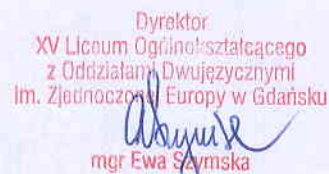 Dyrektor
XV Liceum Ogólnokształcącego
z Oddziałami Dwujęzycznymi
im. Zjednoczonej Europy w Gdańsku
mgr Ewa Szymska